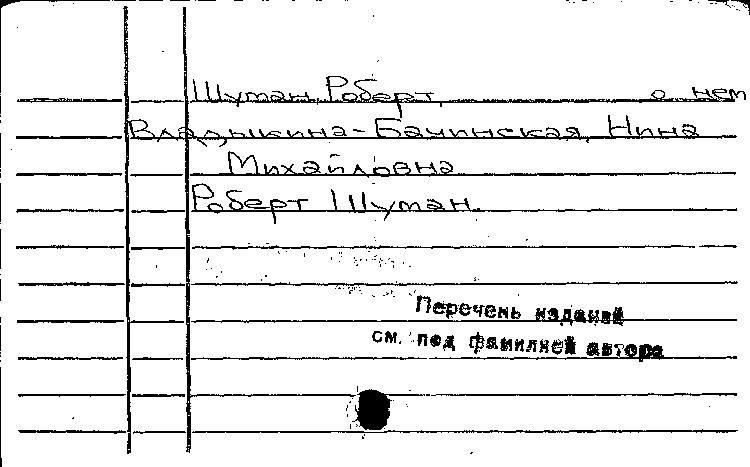 Шуман, Роберт, о нем
Владыкина-Бачинская, Нина
Михайловна
Роберт Шуман.
Перечень изданий
см. под фамилией автора